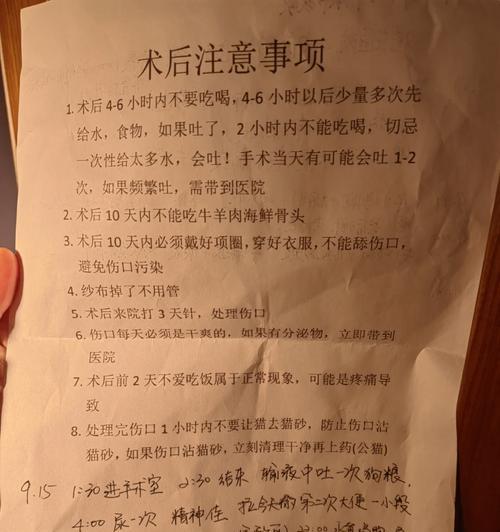 术后注意事项
1. 术后 4-6 小时内不要吃喝，4-6 小时以后少量多次先
给水，食物，如果吐了，2 小时内不能吃喝，切忌
一次性给太多水，会吐！手术当天有可能会吐 1-2
次，如果频繁吐，需带到医院
2. 术后 10 天内不能吃牛羊肉海鲜骨头
3. 术后 10 天内必须戴好项圈，穿好衣服，不能舔伤口，
避免伤口污染
4. 纱布掉了不用管
5. 术后来院打 3 天针，处理伤口
6. 伤口每天必须是干爽的，如果有分泌物，立即带到
医院
7. 术后前 2 天不爱吃饭属于正常现象，可能是疼痛导
致
8. 处理完伤口 1 小时内不要让猫去猫砂，防止伤口沾
猫砂，如果伤口沾猫砂，立刻清理干净再上药(公猫)
9.15 1:30进手术室 2:30 结束 输液中吐一次狗粮，
4:00 尿一次 精神佳 第二次大便一小段